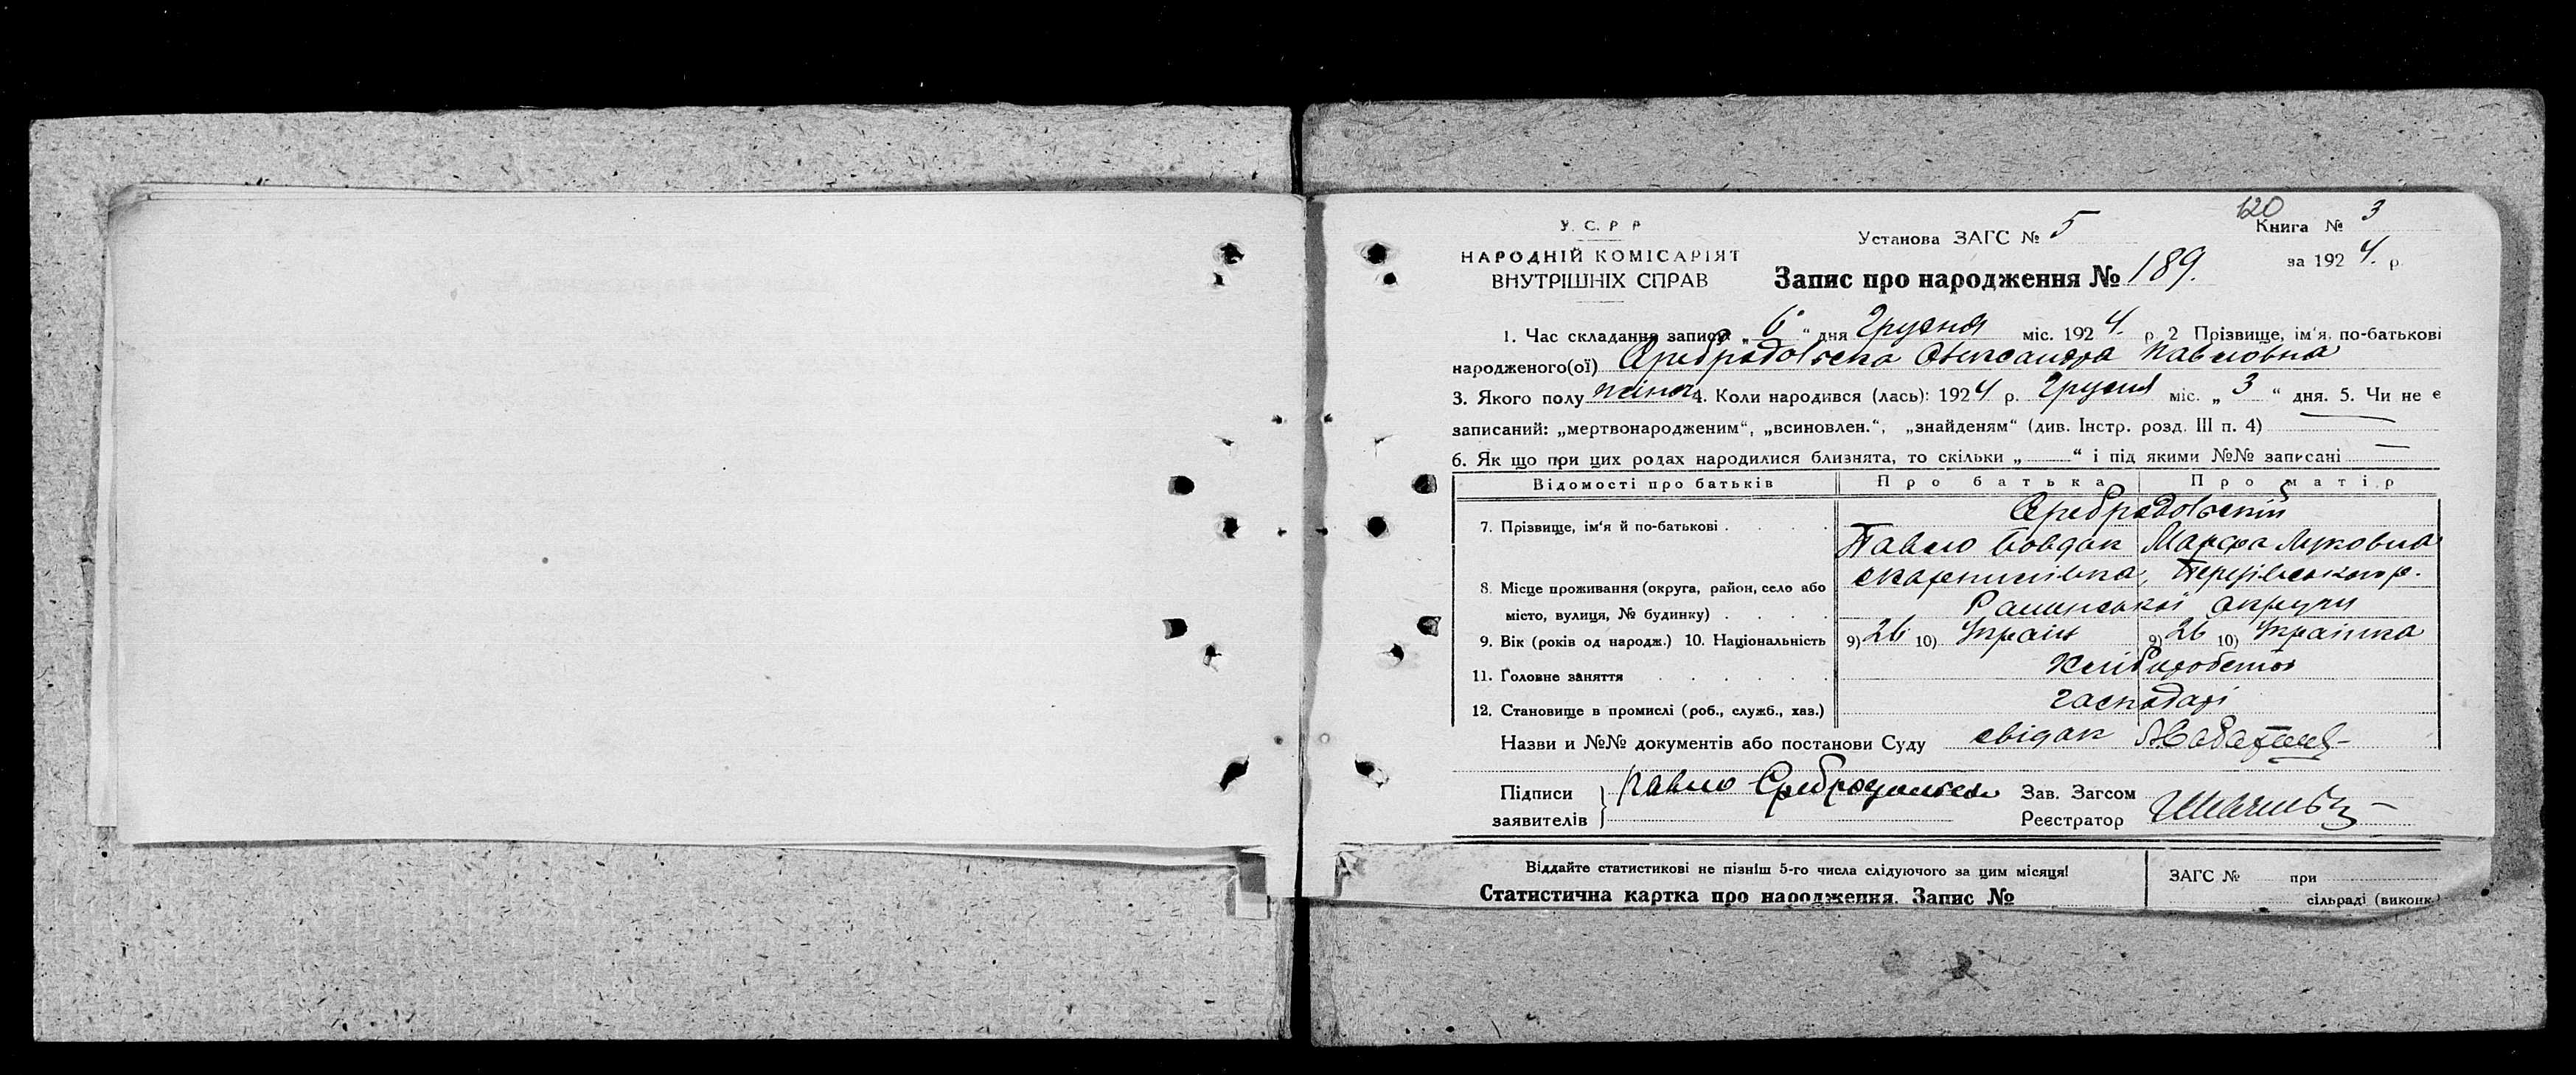 120
У. С. Р Р
Установа ЗАГС № 5
Книга № 3
НАРОДНІЙ КОМІСАРІЯТ
ВНУТРІШНІХ СПРАВ
Запис про народження № 189.
за 1924. р.
1. Час складання запису „6“ дня Грудня міс. 1924. р. 2 Прізвище, ім'я, по-батькові
народженого(ої) Павловна
3. Якого полу жіноч 4. Коли народився (лась): 1924 р. Грудня міс. „3“ дня. 5. Чи не є
записаний: „мертвонародженим“, „всиновлен.“, „знайденям“ (див. Інстр. розд. III п. 4) —
6. Як що при цих родах народилися близнята, то скільки „ “ і під якими №№ записані —
Відомості про батьків Про батька Про матір
7. Прізвище, ім'я й по-батькові
Павло Марфа Луковна
8. Місце проживання (округа, район, село або
місто, вулиця, № будинку) округи
9. Вік (років од народж.) 10. Національність 9) 26 10) Україн 9) 26 10) Українка
11. Головне заняття Хліборобство
12. Становище в промислі (роб., служб., хаз.) господарі
Назви и №№ документів або постанови Суду свідок
Підписи Павло Зав. Загсом
заявителів Реєстратор
Віддайте статистикові не пізніш 5-го числа слідуючого за цим місяця!
ЗАГС № при
Статистична картка про народження. Запис №
сільраді (виконк.)